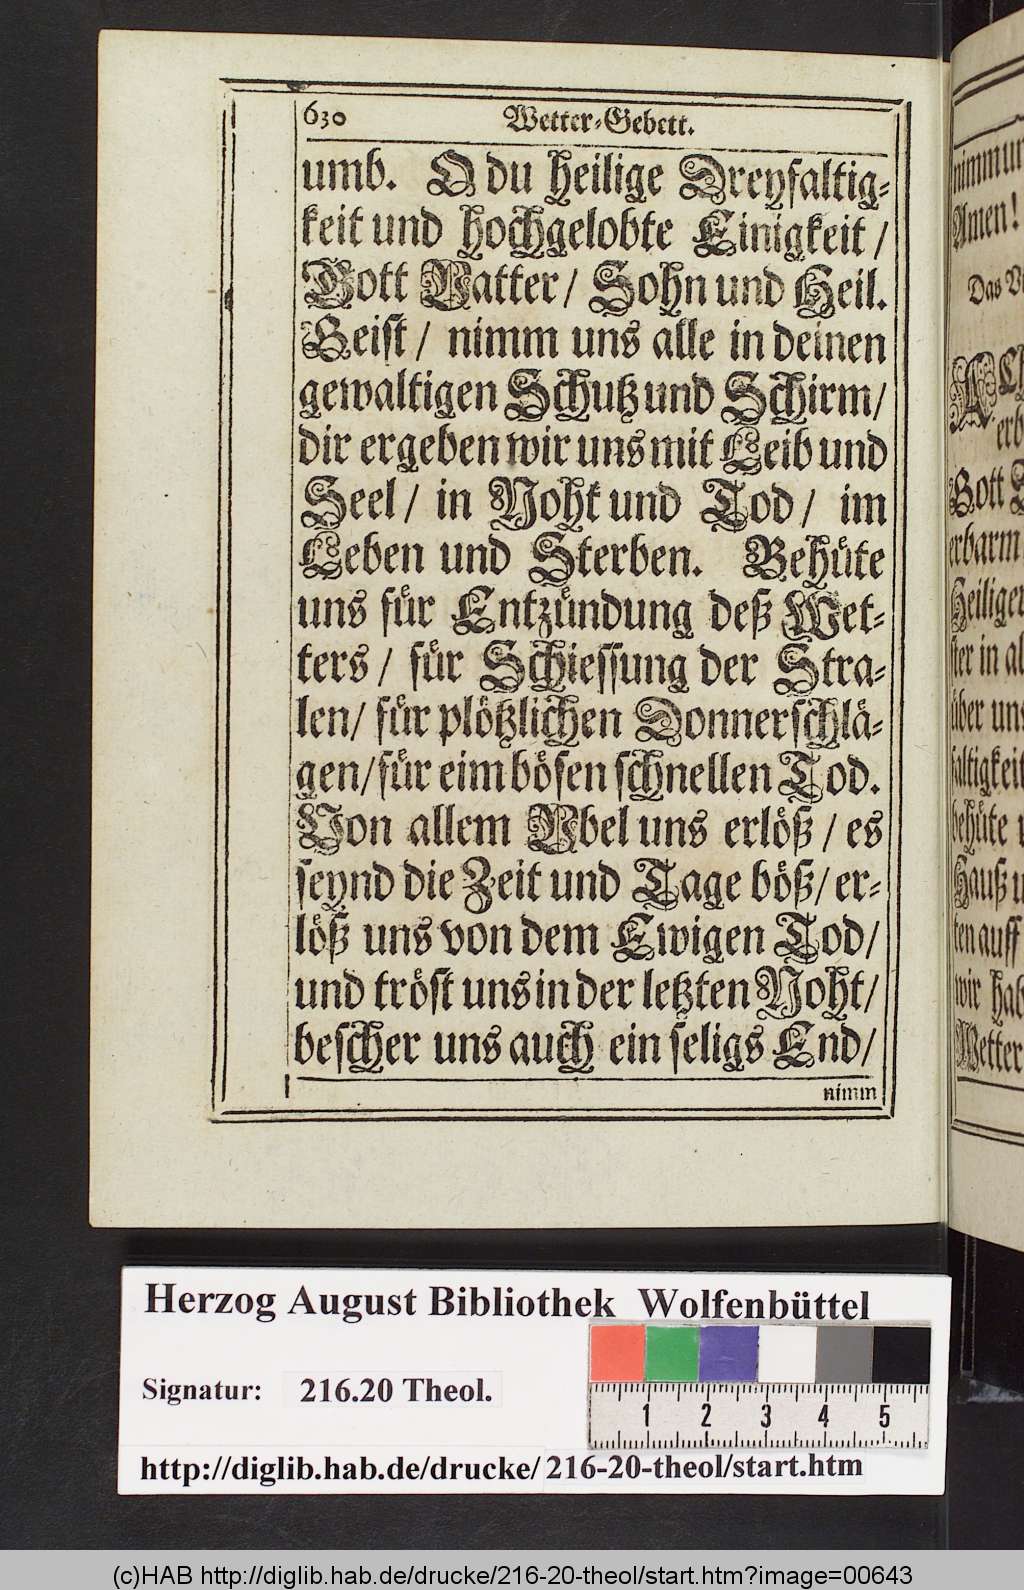 630 Wetter-Gebett.
umb. O du heilige Dreyfaltig-
keit und hochgelobte Einigkeit /
Gott Vatter / Sohn und Heil.
Geist / nimm uns alle in deinen
gewaltigen Schutz und Schirm /
dir ergeben wir uns mit Leib und
Seel / in Noht und Tod / im
Leben und Sterben. Behüte
uns für Entzündung deß Wet-
ters / für Schiessung der Stra-
len / für plötzlichen Donnerschlä-
gen / für eim bösen schnellen Tod.
Von allem Vbel uns erlöß / es
seynd die Zeit und Tage böß / er-
löß uns von dem Ewigen Tod /
und tröst uns in der letzten Noht /
bescher uns auch ein seligs End /
nimm
Amen!
Das
Gott
erbarm
ster in
über uns
faltigkeit
behüte
Hauß
ten auff
wir
Wetter
Herzog August Bibliothek Wolfenbüttel
Signatur: 216.20 Theol.
1 2 3 4 5
http://diglib.hab.de/drucke/216-20-theol/start.htm
(c)HAB http://diglib.hab.de/drucke/216-20-theol/start.htm?image=00643